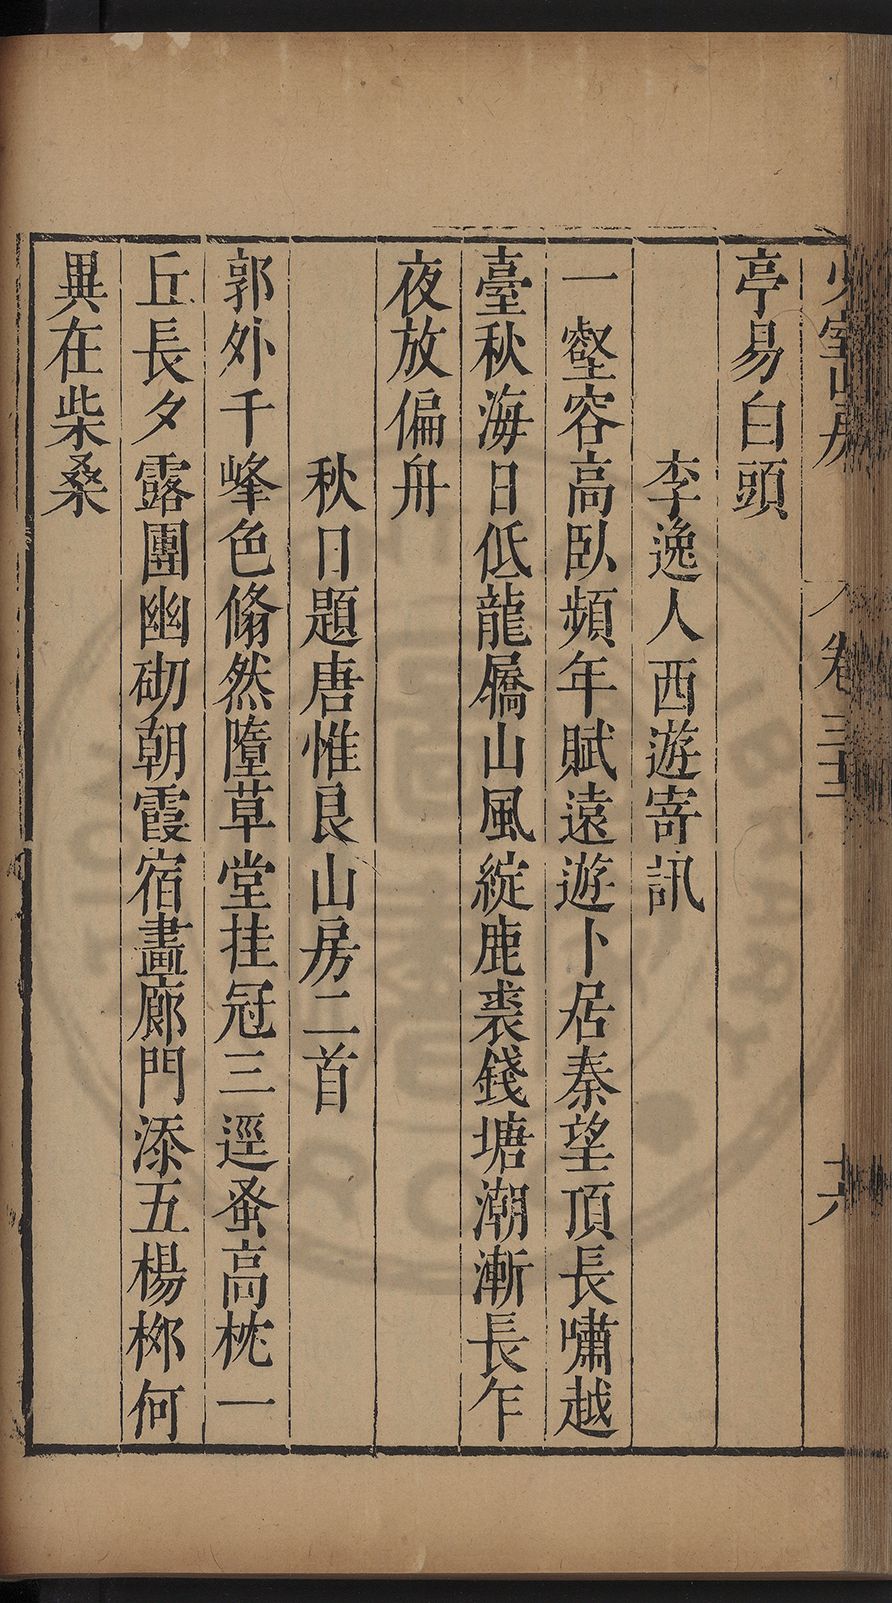 少室山房 卷三十三 十六
亭易白頭
李逸人西遊寄訊
一壑容高臥頻年賦遠遊卜居秦望頂長嘯越
臺秋海日低龍屩山風綻鹿裘錢塘潮漸長乍
夜放偏舟
秋日題唐惟良山房二首
郭外千峰色翛然墮草堂挂冠三逕蚤高枕一
丘長夕露團幽砌朝霞宿畫廊門添五楊柳何
異在柴桑